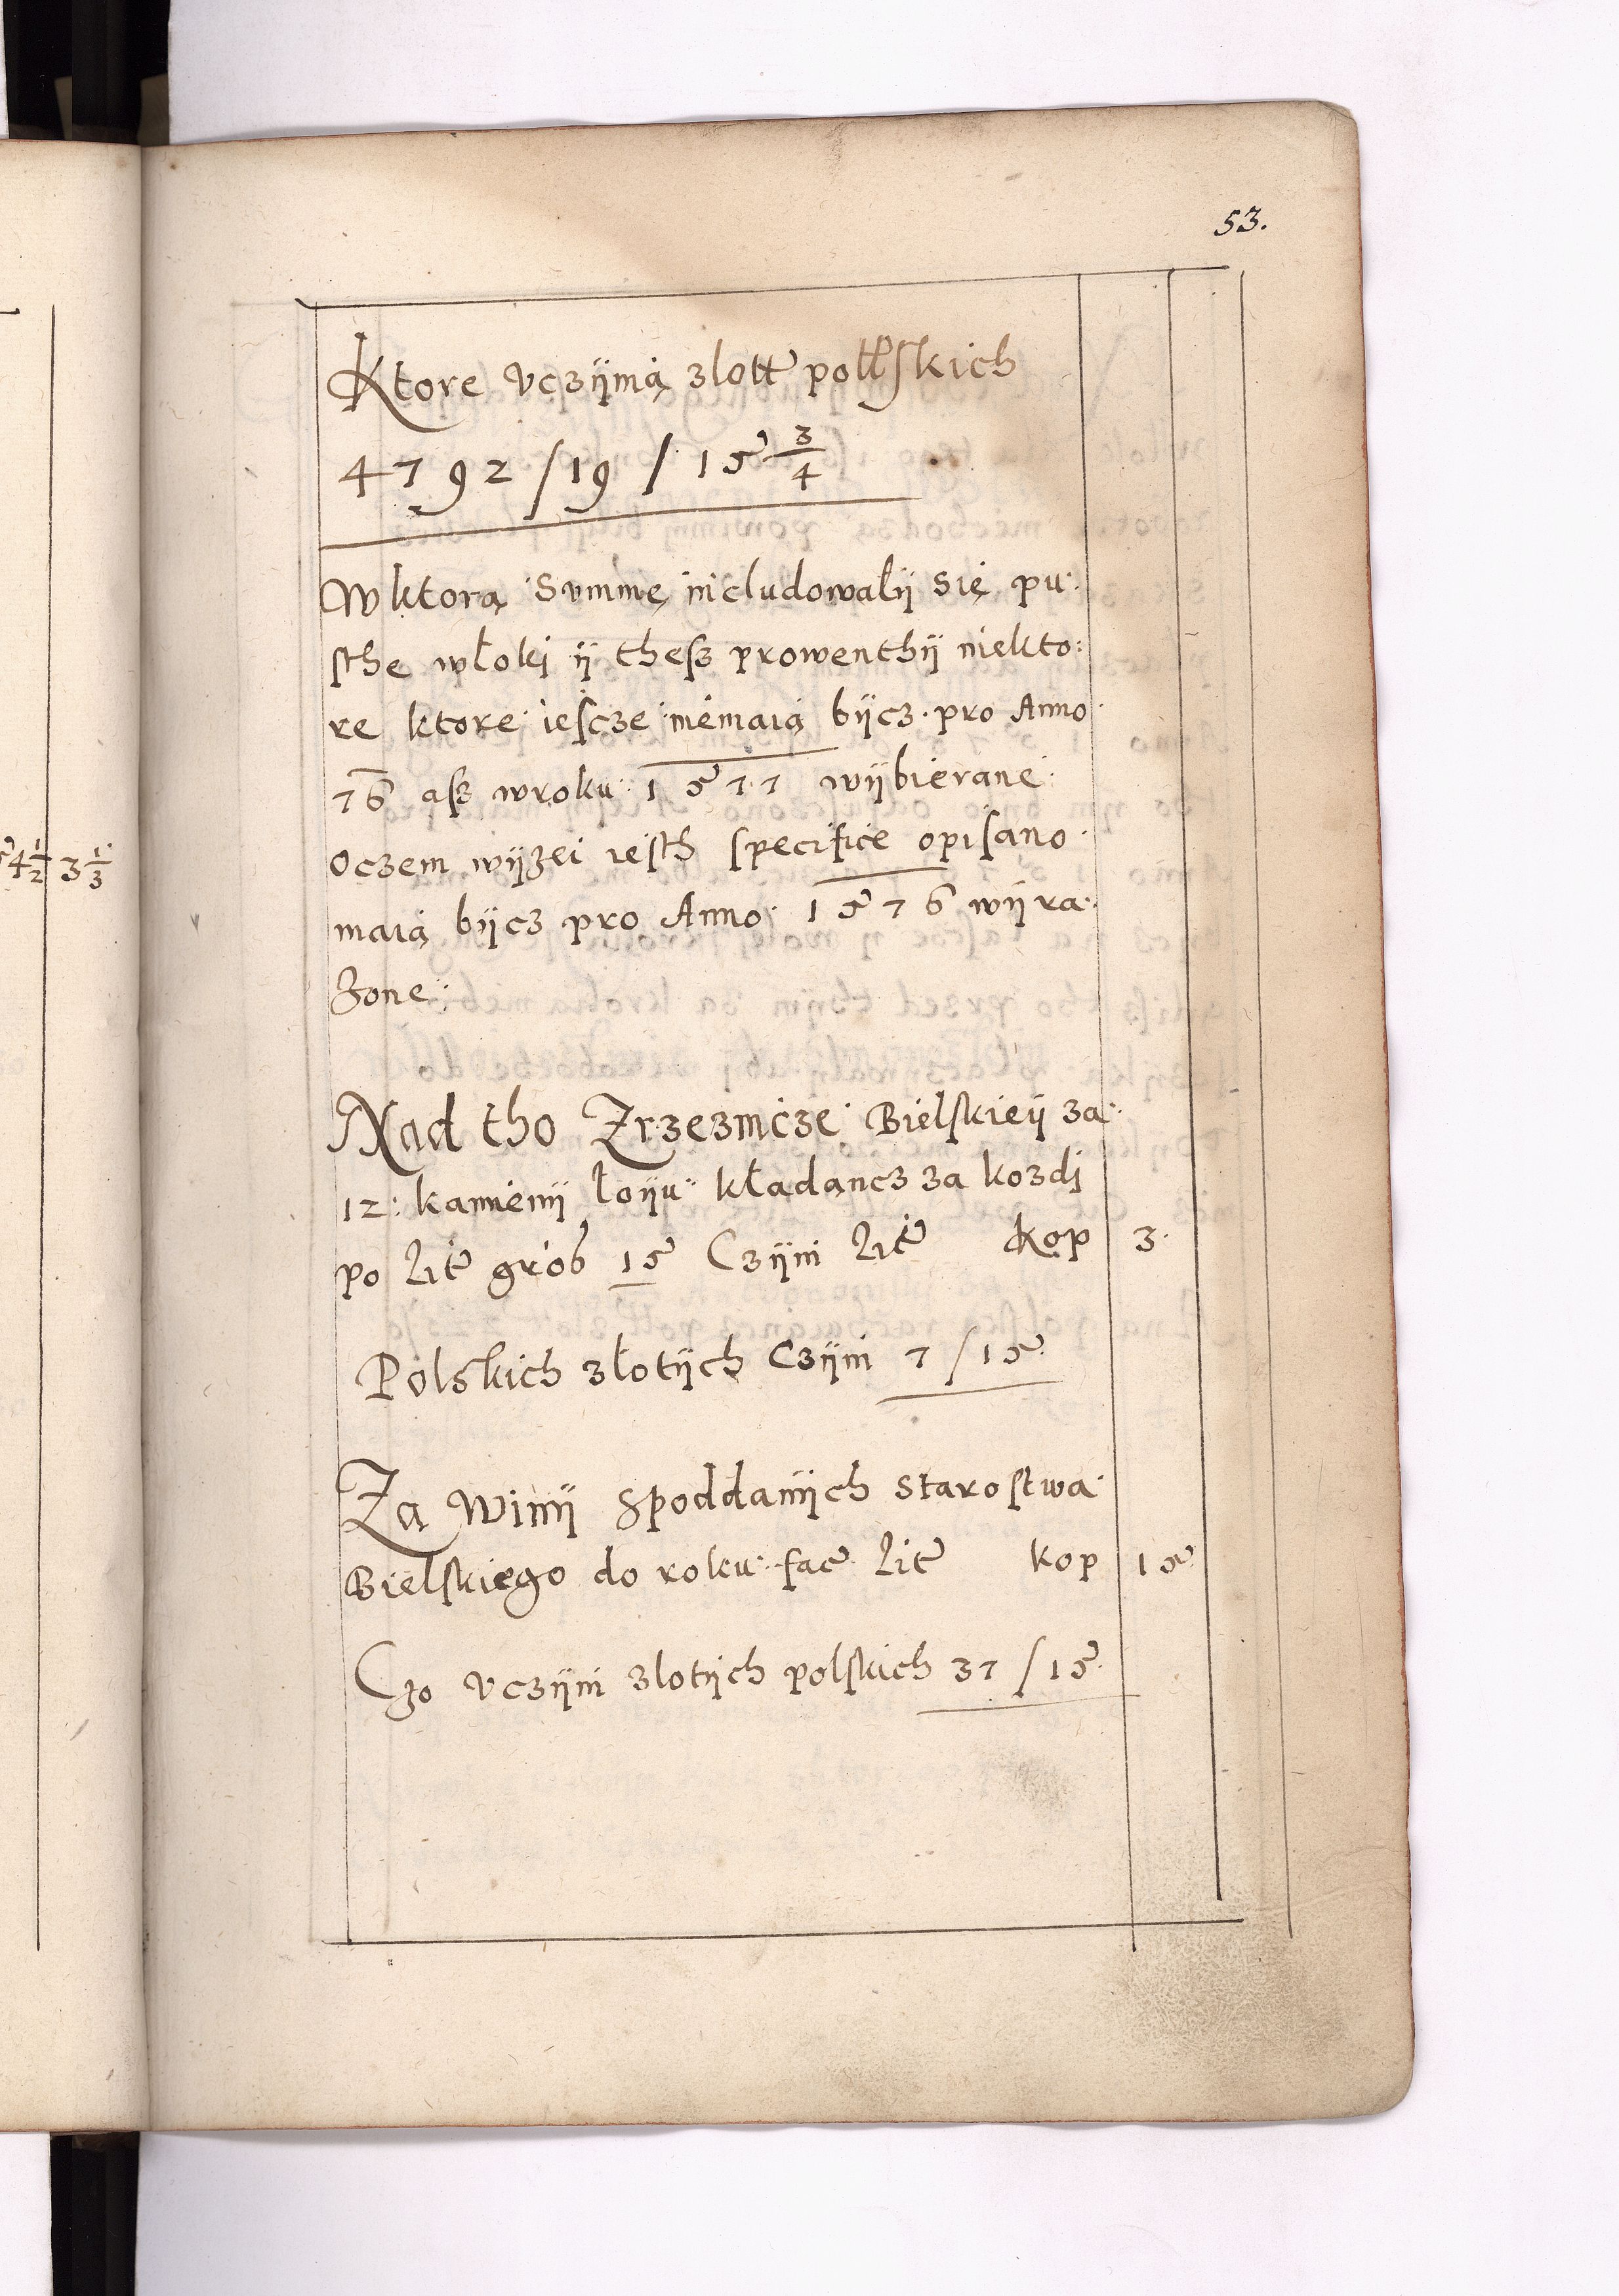 53.
Ktore vczÿnią zlott polłskich
4792/19/15 3/4
W ktorą Summę includowalÿ się pu:
sthe włoki ÿ thesz prowenthÿ niekto:
re ktore iescze niemaią bÿcz pro Anno
76 asz wroku 1577 wÿbierane
Oczem wÿzei iesth specifice opisano
maią bÿcz pro Anno 1576 wÿra:
zone:
Nad tho Zrzeznicze Bielskieÿ za
12: kamienÿ łoÿu kładancz za kozdj
po Lit grob 15 Czÿni Lit kop 3.
Polskich złotÿch Czÿni 7/15
Za Winÿ spoddanÿch starostwa
Bielskiego do roku fac Lit kop 15
Czo vczÿni zlotÿch polskich 37/15
4 1/2 3 1/3